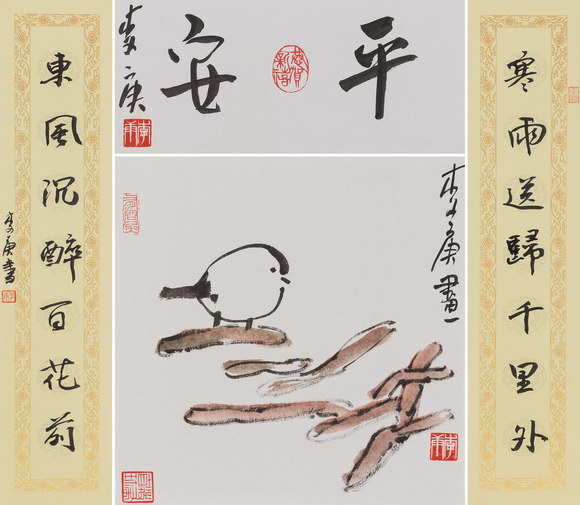 平安
恭賀新禧
李庚
寒雨送歸千里外
李庚畫
東風沉醉百花前
李庚書